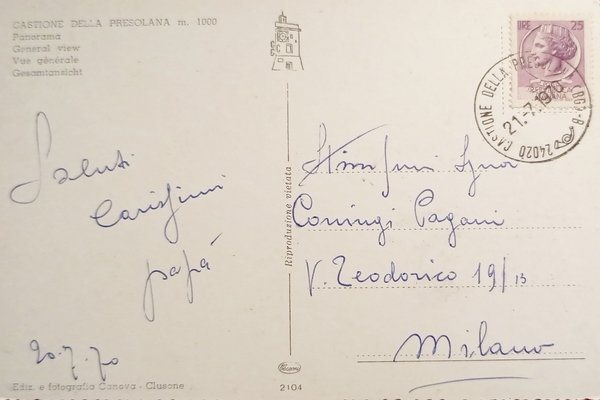 CASTIONE DELLA PRESOLANA m. 1000
Panorama
General view
Vue générale
Gesamtansicht
Saluti
Carissimi
papà
20.7.70
Ediz. e fotografia Canova - Clusone
Riproduzione vietata
2104
LIRE 25
24020 CASTIONE DELLA PRES (BG) - B
21.-7.1970
Pagani
V. Teodorico 19/13
Milano